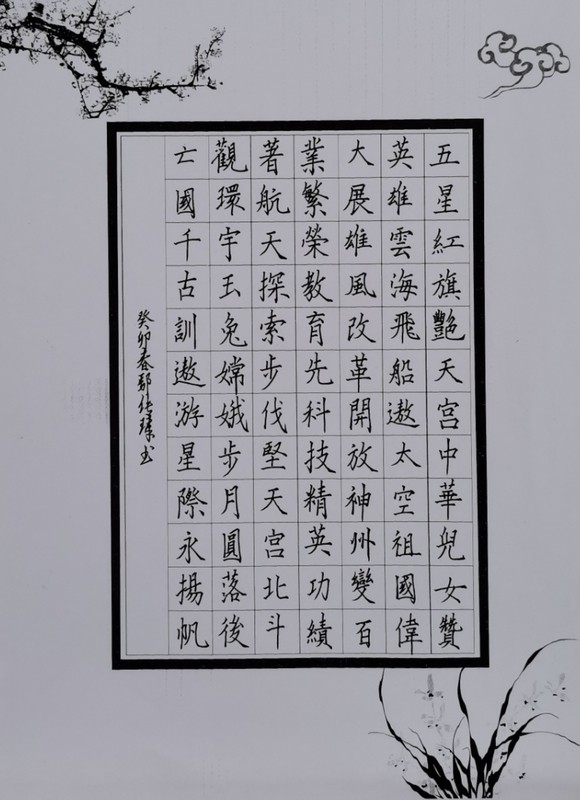 五星紅旗艷天宮中華兒女贊
英雄雲海飛船遨太空祖國偉
大展雄風改革開放神州變百
業繁榮教育先科技精英功績
著航天探索步伐堅天宮北斗
觀環宇玉兔嫦娥步月圓落後
亡國千古訓遨游星際永揚帆
癸卯春书